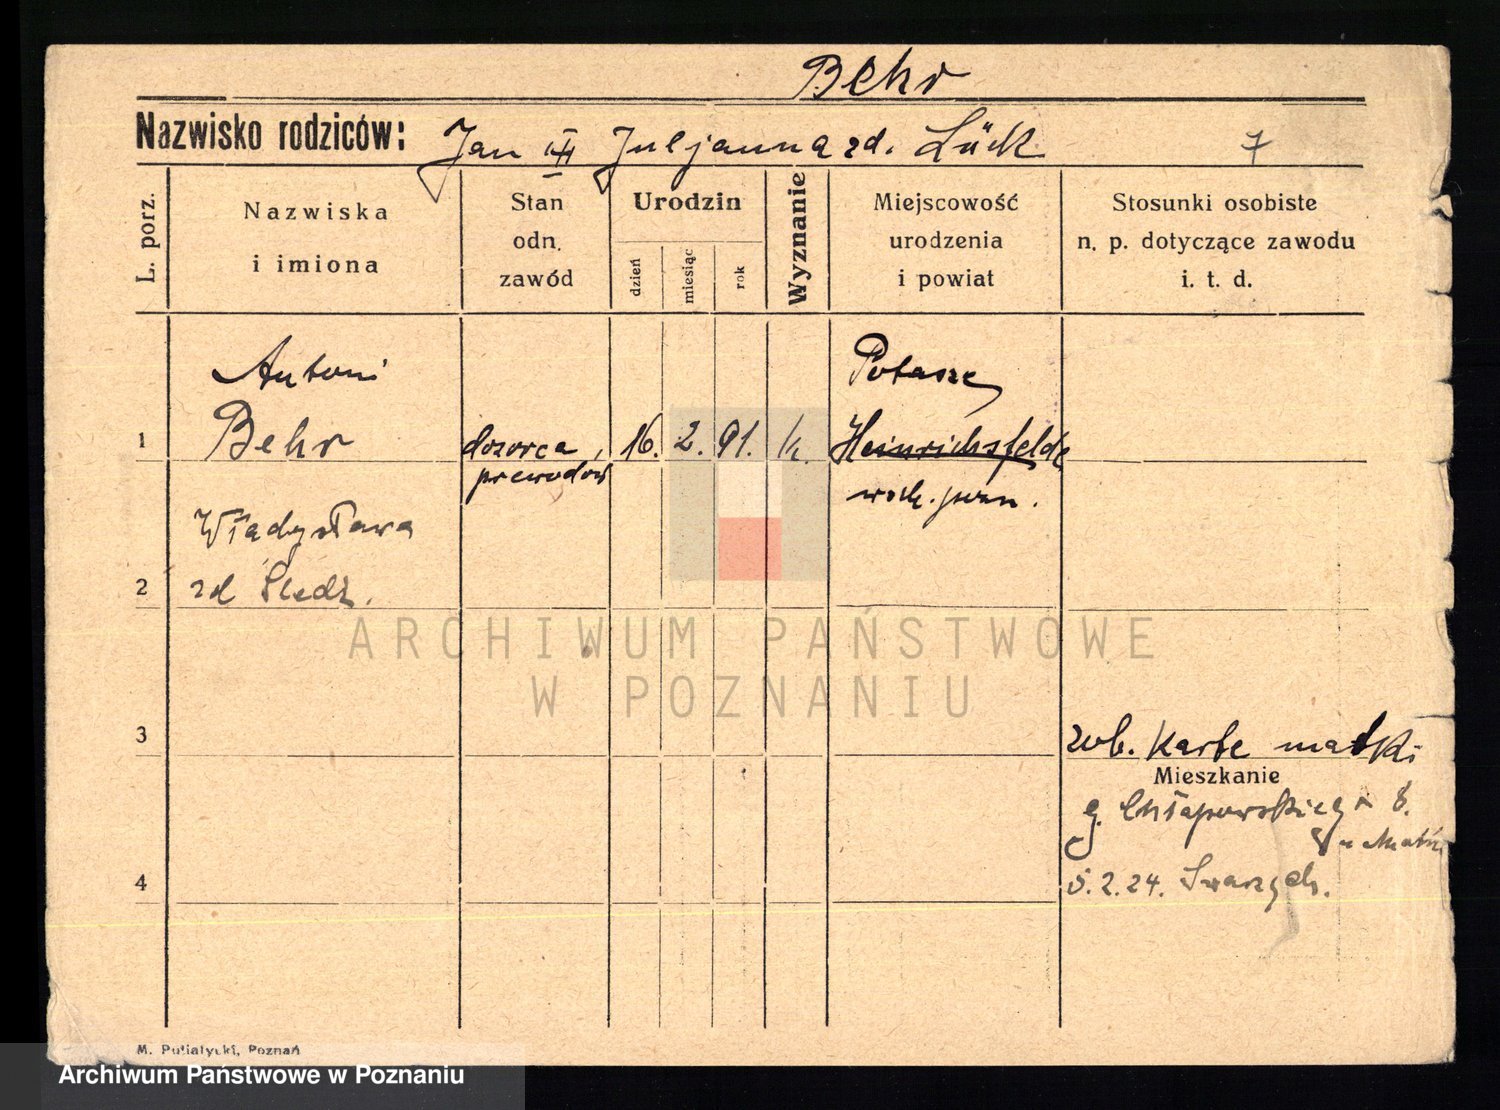 Behr
Nazwisko rodziców: Jan III Juljanna zd. Lück 7
L. porz.
Nazwiska
i imiona
Stan
odn.
zawód
Urodzin
dzień
miesiąc
rok
Wyznanie
Miejscowość
urodzenia
i powiat
Stosunki osobiste
n. p. dotyczące zawodu
i. t. d.
Antoni Potasze
1 Behr dozorca, 16. 2. 91. k. Heinrichsfelde
przewodów
Władysława
2 zd Śledź.
ARCHIWUM PAŃSTWOWE
W POZNANIU
3 zob. Karte matki
Mieszkanie
g. Chłapowskiego 8.
4 5.2.24. Swarzędz.
M. Putiatycki, Poznań
Archiwum Państwowe w Poznaniu